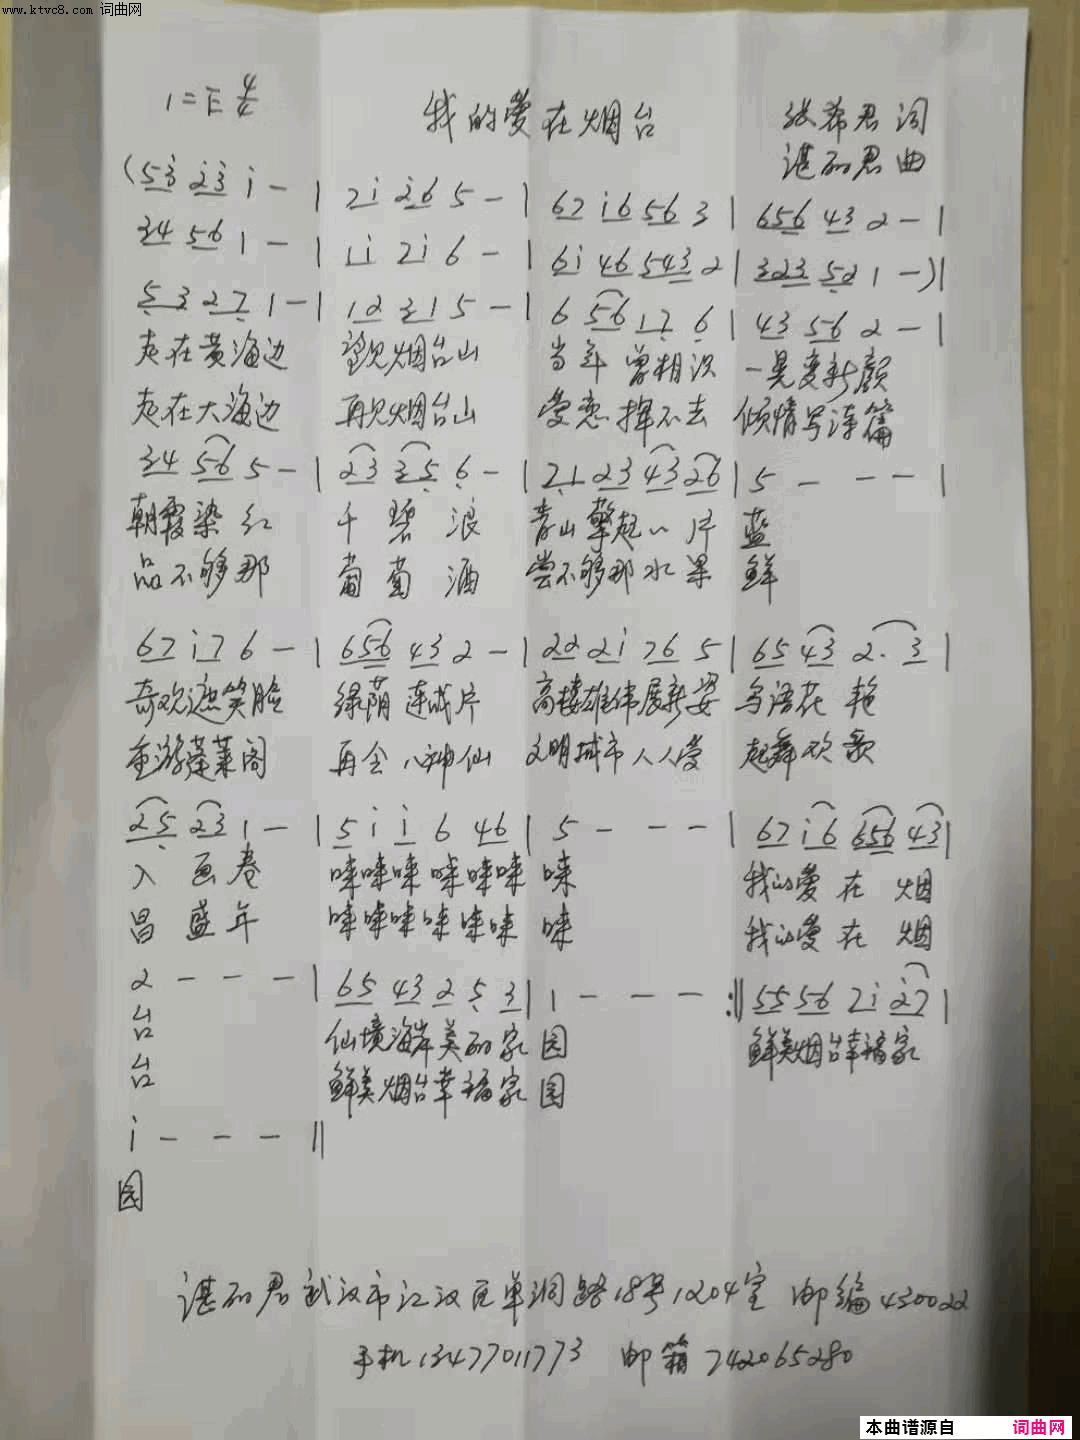 www.ktvc8.com 词曲网
1=E 4/4
我的爱在烟台
张希君 词
谌丽君 曲
(53 23 1 - | 21 26 5 - | 67 16 56 3 | 656 43 2 - |
34 56 1 - | 11 21 6 - | 61 46 543 2 | 323 52 1 -)|
5 3 27 1 - | 12 31 5 - | 6 56 17 6 | 43 56 2 - |
走在黄海边 望见烟台山 当年曾相识 一晃变新颜
走在大海边 再见烟台山 爱恋挥不去 倾情写诗篇
34 56 5 - | 23 35 6 - | 21 23 43 26 | 5 - - - |
朝霞染红 千碧浪 青山擎起一片 蓝
品不够那 葡萄酒 尝不够那水果 鲜
67 17 6 - | 656 43 2 - | 22 21 76 5 | 65 43 2. 3 |
奇欢遮笑脸 绿荫连成片 高楼雄伟展新姿 鸟语花艳
重游蓬莱阁 再会八神仙 文明城市人人爱 起舞欢歌
25 23 1 - | 5 1 1 6 46 | 5 - - - | 67 16 656 43 |
入画卷 唻唻唻唻唻唻 唻 我的爱在烟
昌盛年 唻唻唻唻唻唻 唻 我的爱在烟
2 - - - | 65 43 2 5 3 | 1 - - - :‖ 55 56 71 27 |
台 仙境海岸美丽家 园 鲜美烟台幸福家
台 鲜美烟台幸福家 园
1 - - - ‖
园
谌丽君 武汉市江汉区单洞路18号1204室 邮编430022
手机13477011773 邮箱742065280
本曲谱源自 词曲网